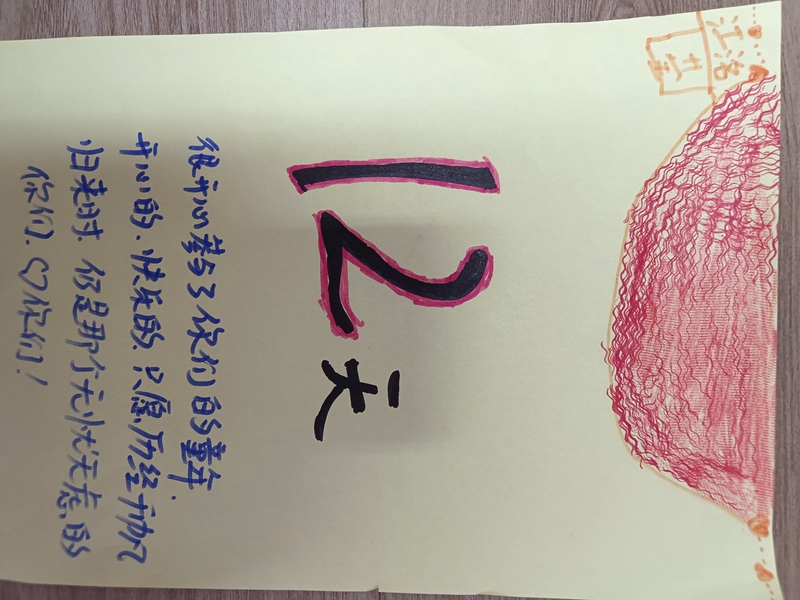 江洛
12天
很开心参与了你们的童年.
开心的、快乐的.只愿历经千帆
归来时.仍是那个无忧无虑的
你们.♡你们!